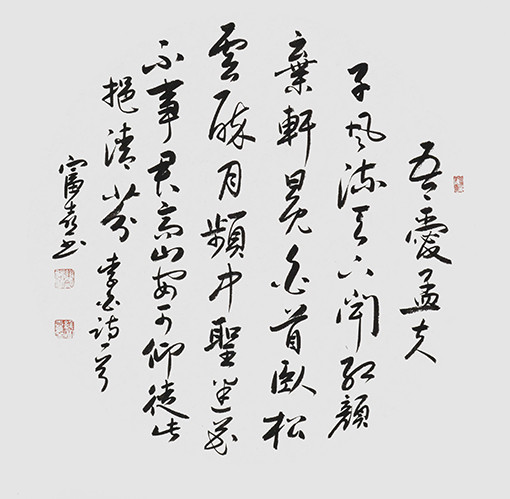 吾愛孟夫
子風流天下聞紅顏
棄軒冕白首臥松
雲醉月頻中聖迷花
不事君高山安可仰徒此
挹清芬 李白詩一首
富春书